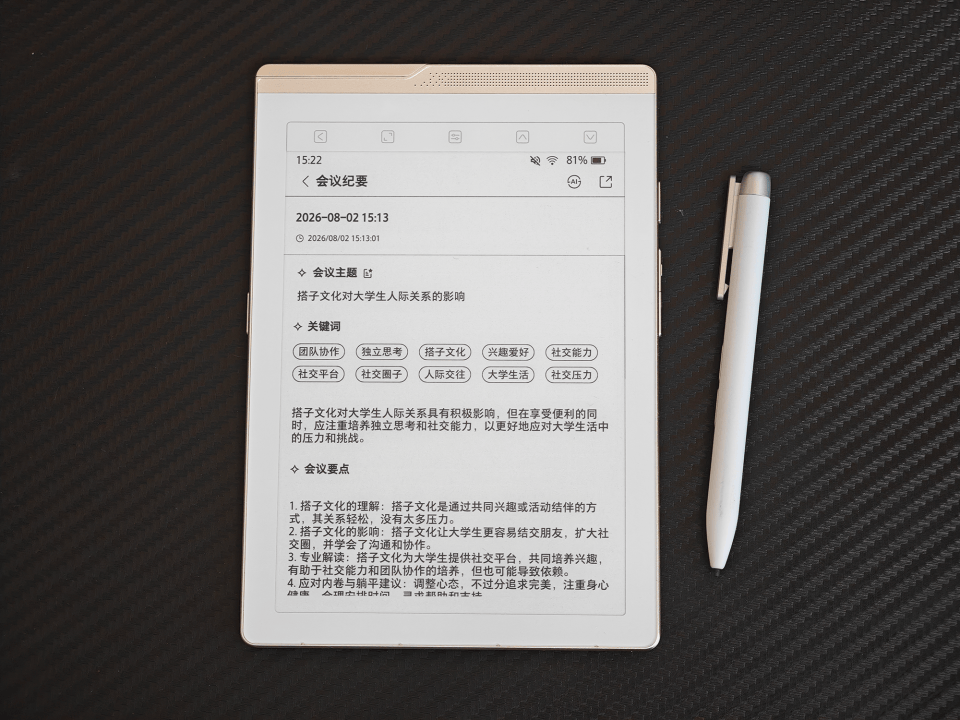 15:22
81%
会议纪要
AI
2026-08-02 15:13
2026/08/02 15:13:01
会议主题
搭子文化对大学生人际关系的影响
关键词
团队协作 独立思考 搭子文化 兴趣爱好 社交能力
社交平台 社交圈子 人际交往 大学生活 社交压力
搭子文化对大学生人际关系具有积极影响，但在享受便利的同
时，应注重培养独立思考和社交能力，以更好地应对大学生活中
的压力和挑战。
会议要点
1. 搭子文化的理解：搭子文化是通过共同兴趣或活动结伴的方
式，其关系轻松，没有太多压力。
2. 搭子文化的影响：搭子文化让大学生更容易结交朋友，扩大社
交圈，并学会了沟通和协作。
3. 专业解读：搭子文化为大学生提供社交平台，共同培养兴趣，
有助于社交能力和团队协作的培养，但也可能导致依赖。
4. 应对内卷与躺平建议：调整心态，不过分追求完美，注重身心
健康，合理安排时间，寻求帮助和支持